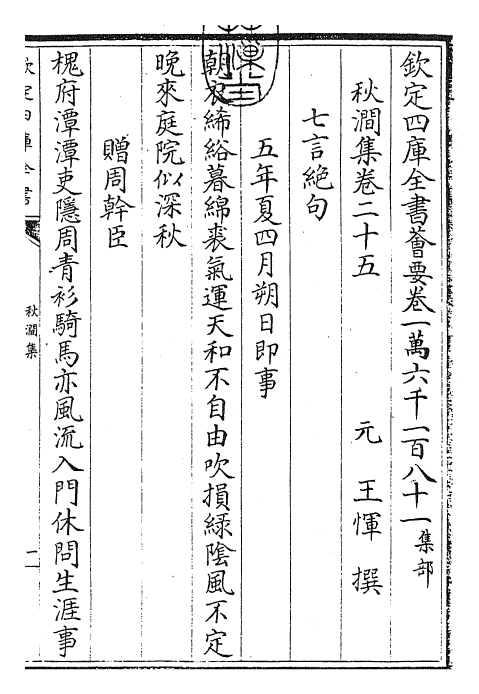 欽定四庫全書薈要卷一萬六千一百八十一集部
秋澗集卷二十五 元 王惲 撰
七言絶句
五年夏四月朔日即事
朝衣絺綌暮綿裘氣運天和不自由吹損緑陰風不定
晚來庭院似深秋
贈周幹臣
槐府潭潭吏隱周青衫騎馬亦風流入門休問生涯事
欽定四庫全書
秋澗集
一